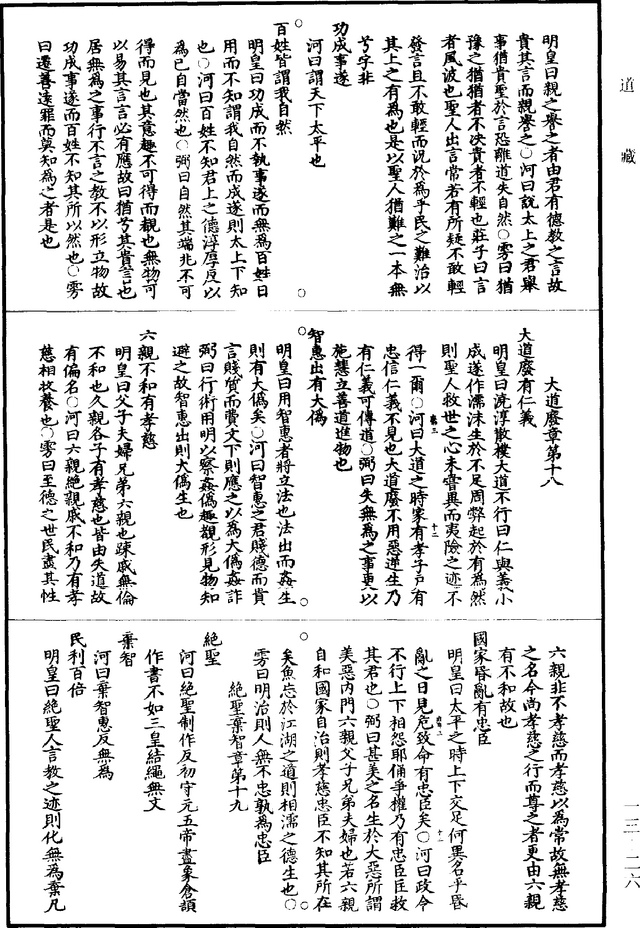 道藏
明皇曰親之譽之者由君有德教之言故
貴其言而親譽之○河曰說太上之君舉
事猶貴聖於言恐離道失自然○雱曰猶
豫之猶猶者不決貴者不輕也莊子曰言
者風波也聖人出言常若有所疑不敢輕
發言且不敢輕而況於為乎民之難治以
其上之有為也是以聖人猶難之一本無
兮字非
功成事遂
河曰謂天下太平也
百姓皆謂我自然
明皇曰功成而不執事遂而無為百姓日
用而不知謂我自然而成遂則太上下知
也○河曰百姓不知君上之德淳厚反以
為已自當然也○弼曰自然其端兆不可
得而見也其意趣不可得而覩也無物可
以易其言言必有應故曰猶兮其貴言也
居無為之事行不言之教不以形立物故
功成事遂而百姓不知其所以然也○雱
曰遷善遠罪而莫知為之者是也
大道廢章第十八
大道廢有仁義
明皇曰澆淳散樸大道不行曰仁與義小
成遂作濡沫生於不足周弊起於有為然
則聖人救世之心未嘗異而夷險之迹不
得一爾○河曰大道之時家有孝子戶有
忠信仁義不見也大道廢不用惡逆生乃
有仁義可傳道○弼曰失無為之事更以
施慧立善道進物也
智惠出有大偽
明皇曰用智惠者將立法也法出而姦生
則有大偽矣○河曰智惠之君賤德而貴
言賤質而貴文下則應之以為大偽姦詐
弼曰行術用明以察姦偽趣覩形見物知
避之故智惠出則大偽生也
六親不和有孝慈
明皇曰父子夫婦兄弟六親也疎戚無倫
不和也久親各子有孝慈也皆由失道故
有偏名○河曰六親絕親戚不和乃有孝
慈相牧養也○雱曰至德之世民盡其性
六親非不孝慈而孝慈以為常故無孝慈
之名今尚孝慈之行而尊之者更由六親
有不和故也
國家昏亂有忠臣
明皇曰太平之時上下交足何異名乎昏
亂之日見危致命有忠臣矣○河曰政令
不行上下相怨邪僻爭權乃有忠臣匡救
其君也○弼曰甚美之名生於大惡所謂
美惡同門六親父子兄弟夫婦也若六親
自和國家自治則孝慈忠臣不知其所在
矣魚忘於江湖之道則相濡之德生也○
雱曰明治則人無不忠孰為忠臣
絕聖棄智章第十九
絕聖
河曰絕聖制作反初守元五帝畫象倉頡
作書不如三皇結繩無文
棄智
河曰棄智惠反無為
民利百倍
明皇曰絕聖人言教之迹則化無為棄凡
一三-二六